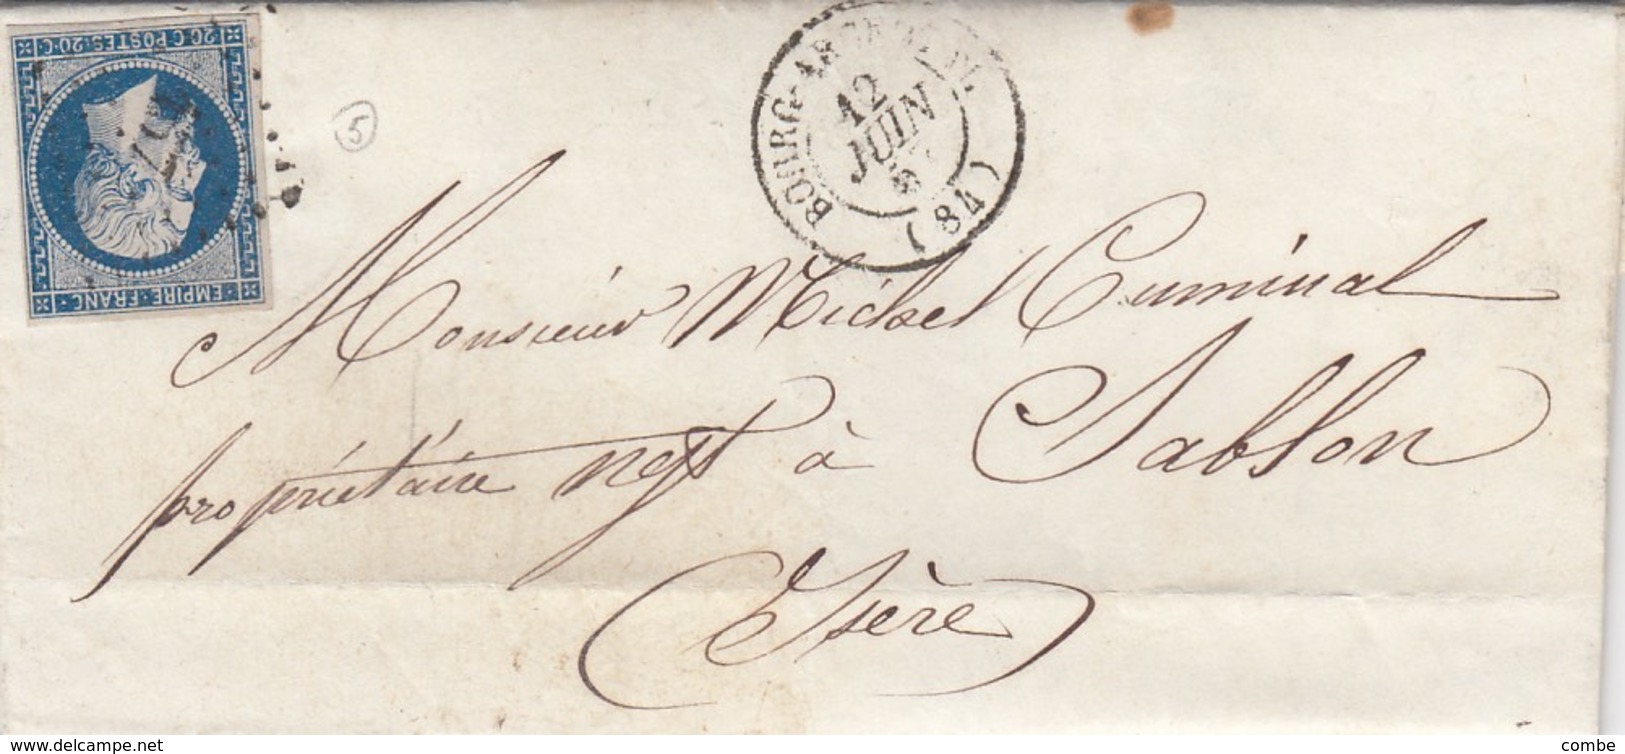 20·C·POSTES·20·C
EMPIRE·FRANC·
5
BOURG-
12
JUIN
5
(84)
Monsieur Michel Cuminal
propriétaire negt à Sablon
Isère
www.delcampe.net
combe